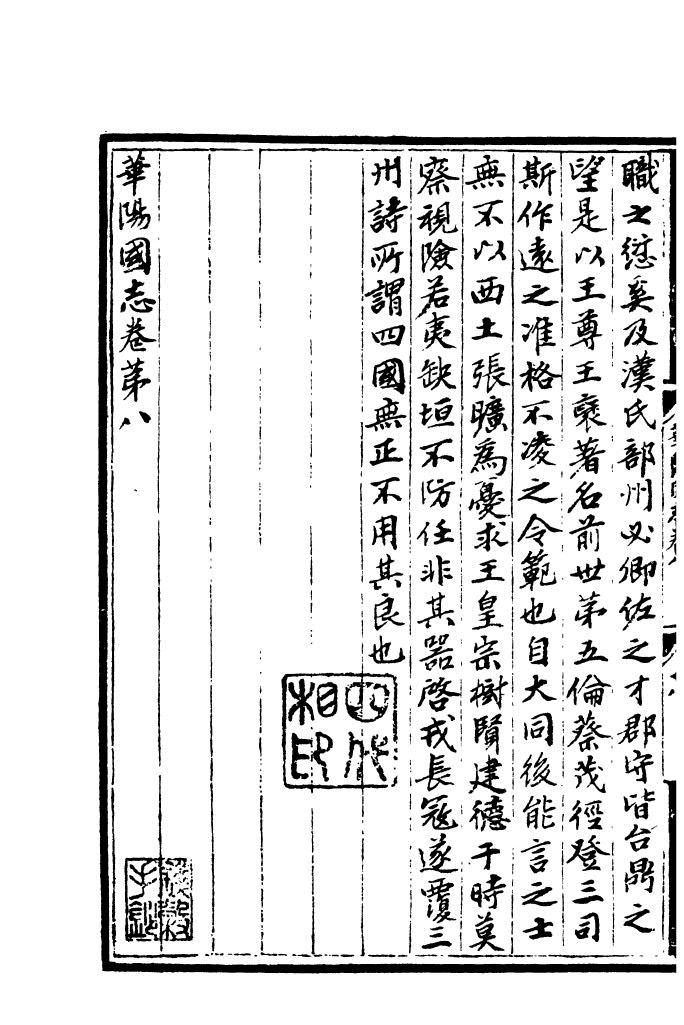 職之愆奚及漢氏部州必卿佐之才郡守皆台鼎之
望是以王尊王襃著名前世第五倫蔡茂徑登三司
斯作遠之准格不凌之令範也自大同後能言之士
無不以西土張曠為憂求王皇宗樹賢建德于時莫
察視險若夷缺垣不防任非其器啓戎長寇遂覆三
州詩所謂四國無正不用其良也
華陽國志卷第八